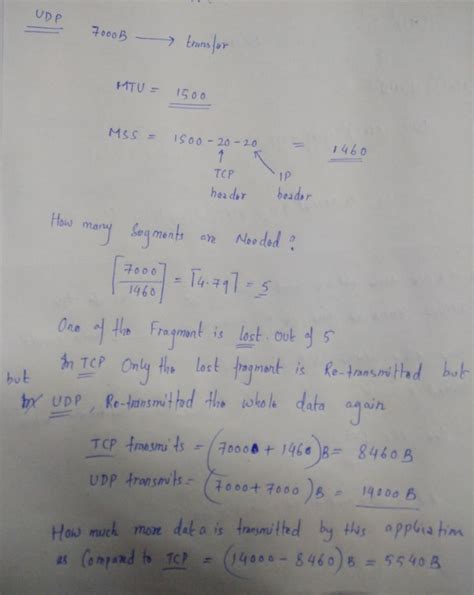 UDP 7000B → transfer
MTU = 1500
MSS = 1500 - 20 - 20 = 1460
TCP IP
header header
How many Segments are Needed?
⌈7000/1460⌉ = ⌈4.79⌉ = 5
One of the Fragment is lost out of 5
In TCP Only the lost fragment is Re-transmitted but
but
UDP, Re-transmitted the whole data again
TCP transmits = (7000 + 1460)B = 8460B
UDP transmits = (7000+7000)B = 14000B
How much more data is transmitted by this application
as Compared to TCP = (14000 - 8460)B = 5540B